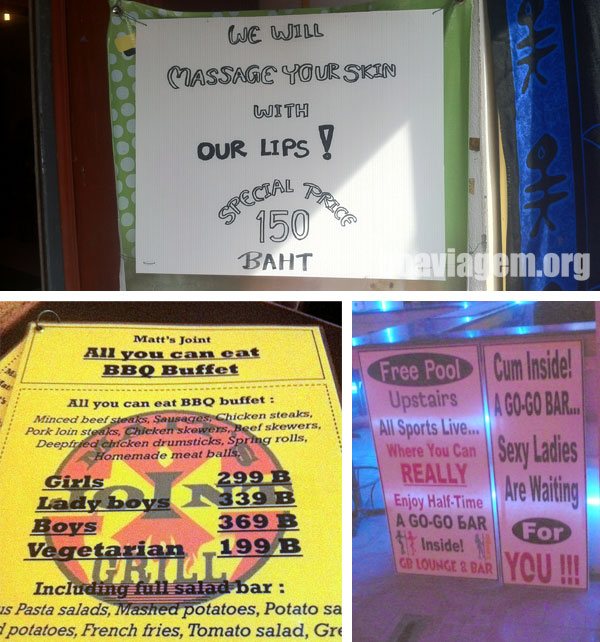 WE WILL
MASSAGE YOUR SKIN
WITH
OUR LIPS!
SPECIAL PRICE
150
BAHT
neviagem.org
Matt's Joint
All you can eat
BBQ Buffet
All you can eat BBQ buffet :
Minced beef steaks, Sausages, Chicken steaks,
Pork loin steaks, Chicken skewers, Beef skewers,
Deepfried chicken drumsticks, Spring rolls,
Homemade meat balls,
Girls 299 B
Lady boys 339 B
Boys 369 B
Vegetarian 199 B
GRILL
Including full salad bar :
us Pasta salads, Mashed potatoes, Potato sa
d potatoes, French fries, Tomato salad, Gre
Free Pool
Upstairs
All Sports Live...
Where You Can
REALLY
Enjoy Half-Time
A GO-GO BAR
Inside!
GB LOUNGE 2 BAR
Cum Inside!
A GO-GO BAR...
Sexy Ladies
Are Waiting
For
YOU !!!